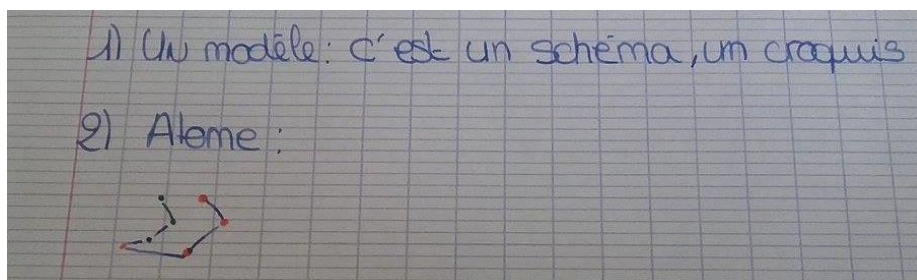 1) Un modèle : c'est un schéma, un croquis
2) Atome :